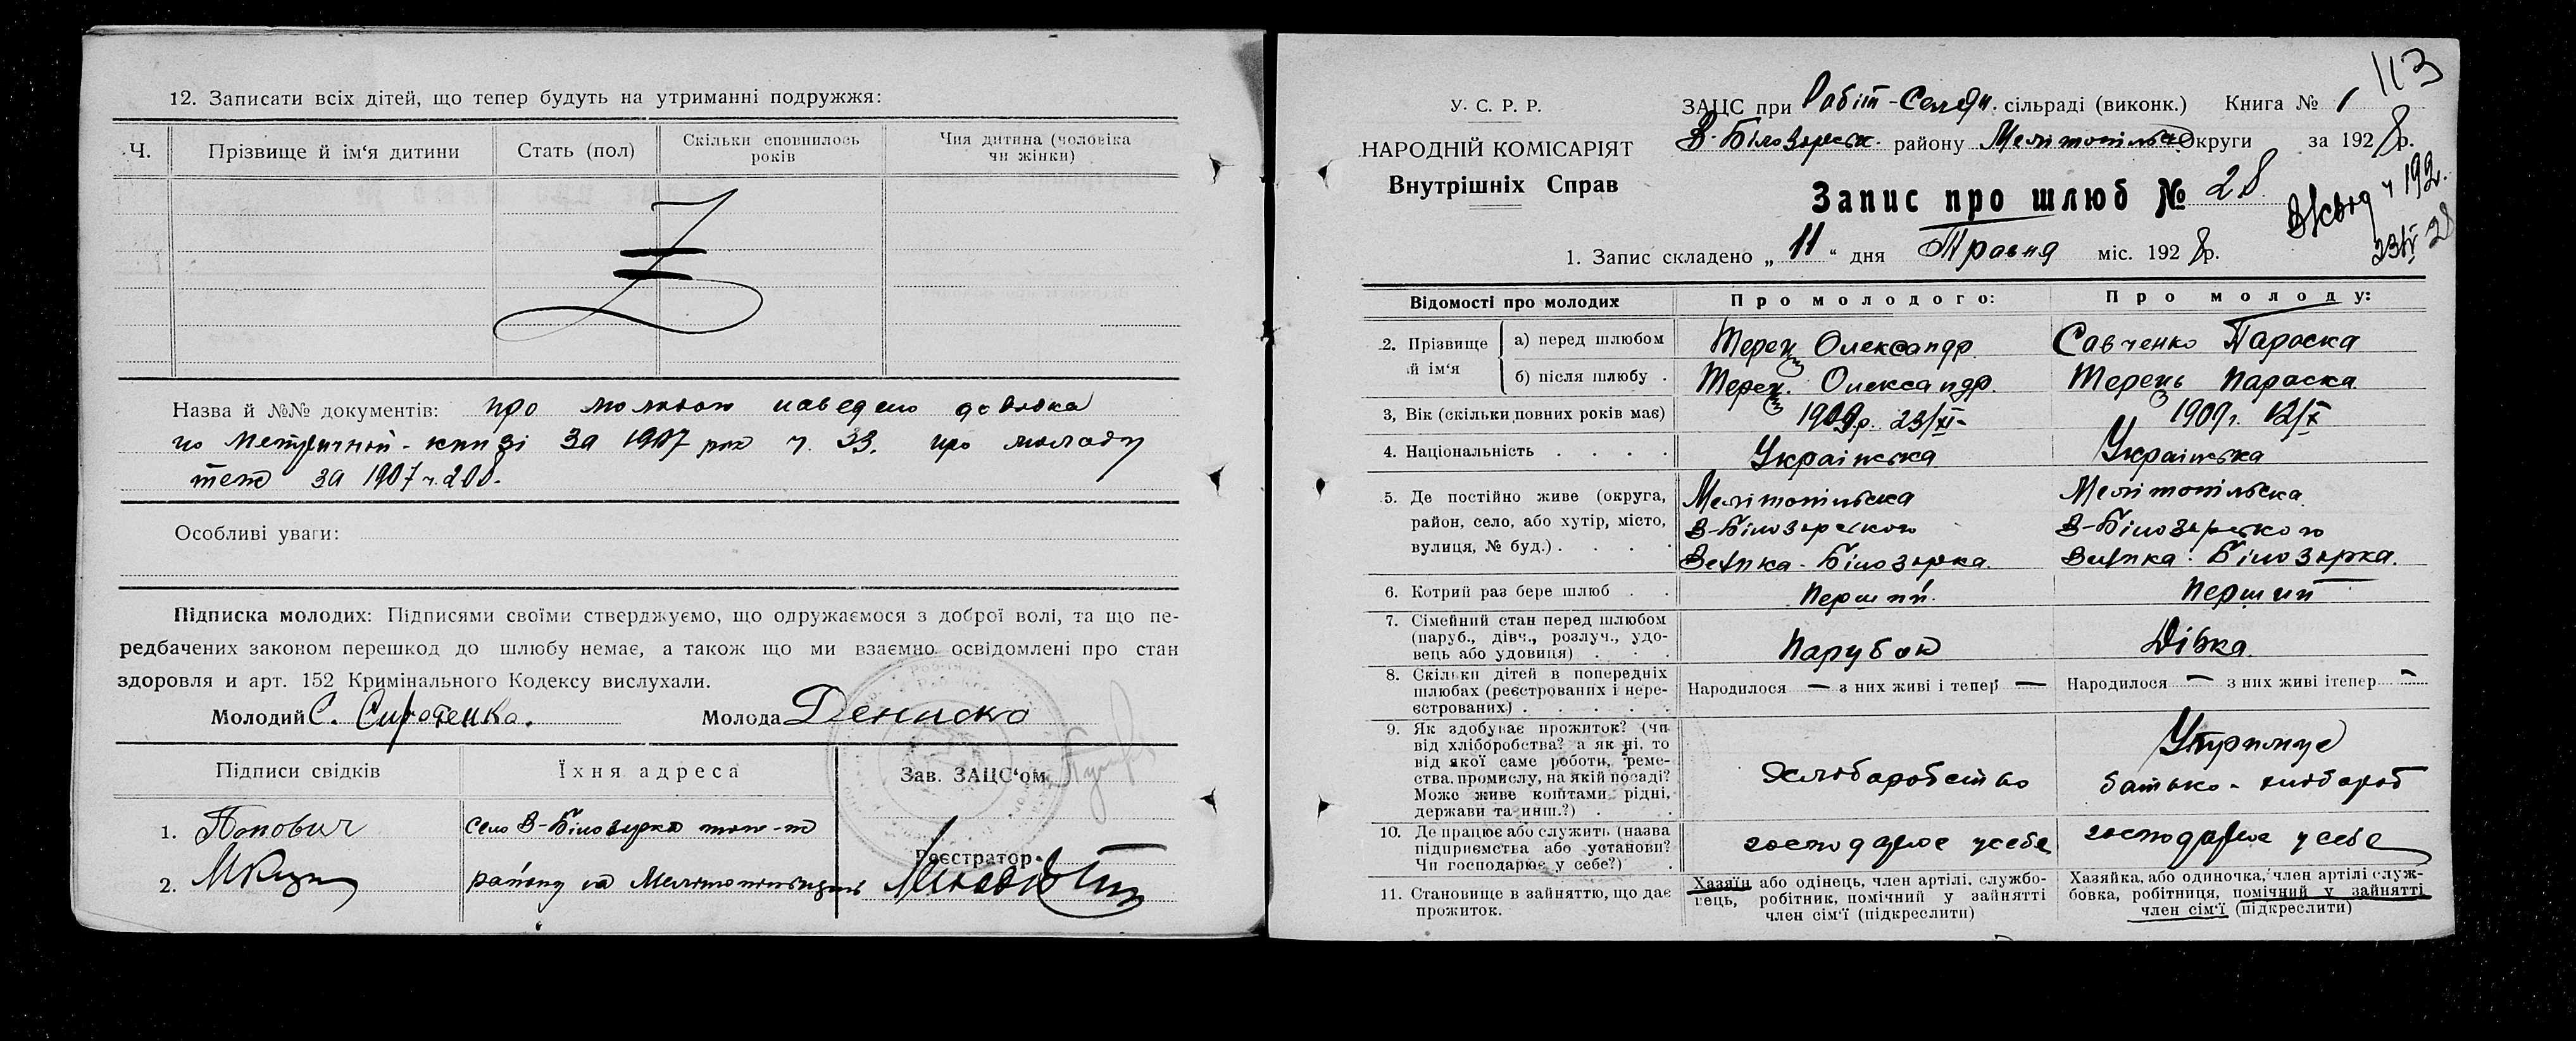 12. Записати всіх дітей, що тепер будуть на утриманні подружжя:
Ч. Прізвище й ім'я дитини Стать (пол) Скільки сповнилось років Чия дитина (чоловіка чи жінки)
Назва й №№ документів: про молодого наведено довідка
по Метричній-книзі за 1907 рок ч. 33. про молоду
теж за 1907 ч. 208.
Особливі уваги:
Підписка молодих: Підписями своїми стверджуємо, що одружаємося з доброї волі, та що пе-
редбачених законом перешкод до шлюбу немає, а також що ми взаємно освідомлені про стан
здоровля и арт. 152 Кримінального Кодексу вислухали.
Молодий С. Сиротенко. Молода Дениско
Підписи свідків Їхня адреса Зав. ЗАЦС'ом
1. Попович село В-Білозірка
2. району на
Реєстратор
113
У. С. Р. Р.
НАРОДНІЙ КОМІСАРІЯТ
Внутрішніх Справ
ЗАЦС при Робіт-Селян. сільраді (виконк.) Книга № 1
В-Білозирськ. району Мелітопільськ округи за 1928 р.
Запис про шлюб № 28
ч 192.
23/V 28
1. Запис складено „11" дня Травня міс. 1928 р.
Відомості про молодих Про молодого: Про молоду:
2. Прізвище й ім'я а) перед шлюбом Терень Олександр Савченко Параска
б) після шлюбу . Терень Олександр. Терень Параска
3, Вік (скільки повних років має) 1909р. 23/XI- 1909 г. 12/X
4. Національність . . . . Українська Українська
5. Де постійно живе (округа, район, село, або хутір, місто, вулиця, № буд.) . . . .
Мелітопільська Мелітопільска
В-Білозирского В-Білозирського
Велика-Білозирка. Велика Білозирка.
6. Котрий раз бере шлюб . . Перший. Перший
7. Сімейний стан перед шлюбом (паруб., дівч., розлуч., удовець або удовиця) . . . Парубок Дівка.
8. Скільки дітей в попередніх шлюбах (реєстрованих і нереєстрованих) . . . . . Народилося — з них живі і тепер — Народилося — з них живі ітепер —
9. Як здобуває прожиток? (чи від хліборобства? а як ні, то від якої саме роботи, ремества, промислу, на якій посаді? Може живе коштами рідні, держави та инш.?) . . Хліборобство Утримує батько-хлібороб
10. Де працює або служить (назва підприємства або установи? Чи господарює у себе?) . господарює у себе господарює у себе
11. Становище в зайняттю, що дає прожиток. Хазяїн або одінець, член артілі, службовець, робітник, помічний у зайнятті член сім'ї (підкреслити) Хазяйка, або одиночка, член артілі службовка, робітниця, помічний у зайнятті член сім'ї (підкреслити)